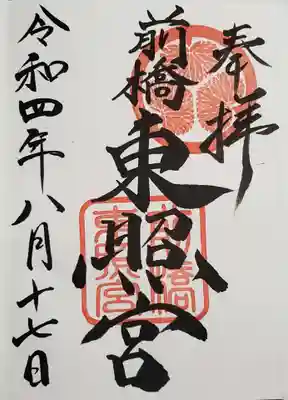 奉拝
前橋
東照宮
前橋東照宮
令和四年八月十七日